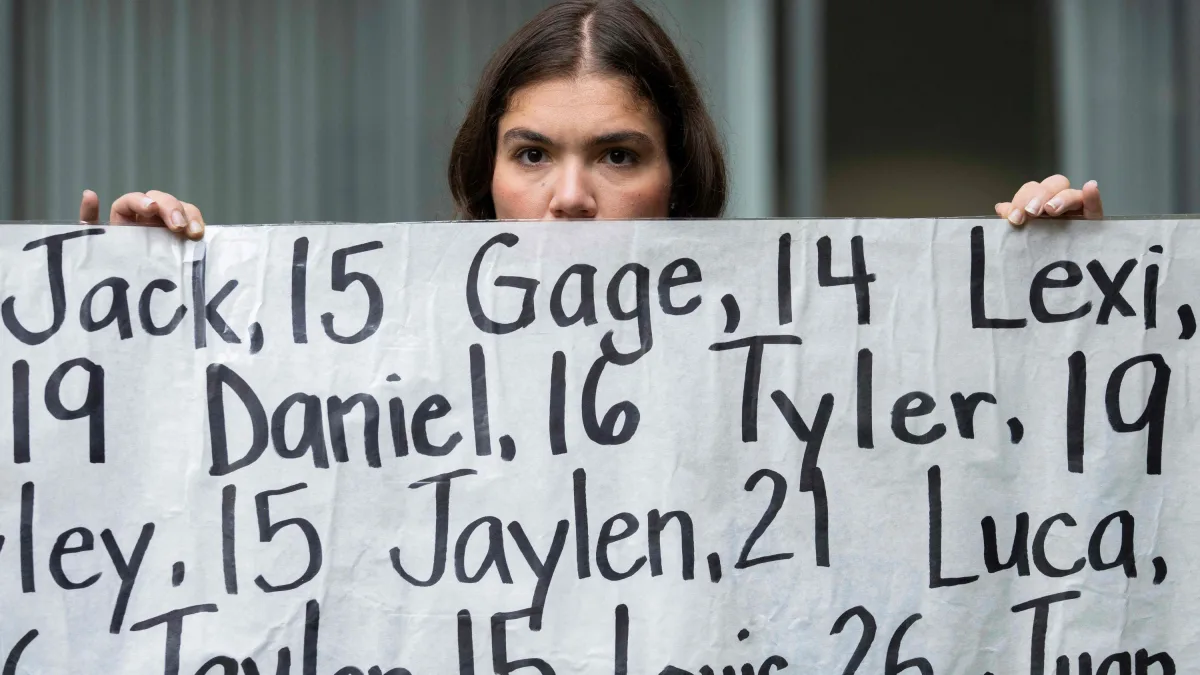 Jack, 15 Gage, 14 Lexi,
19 Daniel, 16 Tyler, 19
ley, 15 Jaylen, 21 Luca,
15 Louis 26 Juan